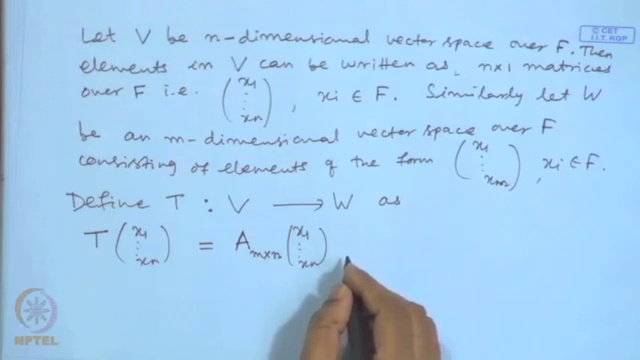 © CET
I.I.T. KGP
Let V be n-dimensional vector space over F. Then
elements in V can be written as, n×1 matrices
over F i.e. (x₁ ⋮ xₙ), xi ∈ F. Similarly let W
be an m-dimensional vector space over F
consisting of elements of the form (x₁ ⋮ xₘ), xi ∈ F.
Define T : V ⟶ W as
T(x₁ ⋮ xₙ) = Aₘₓₙ(x₁ ⋮ xₙ)
NPTEL